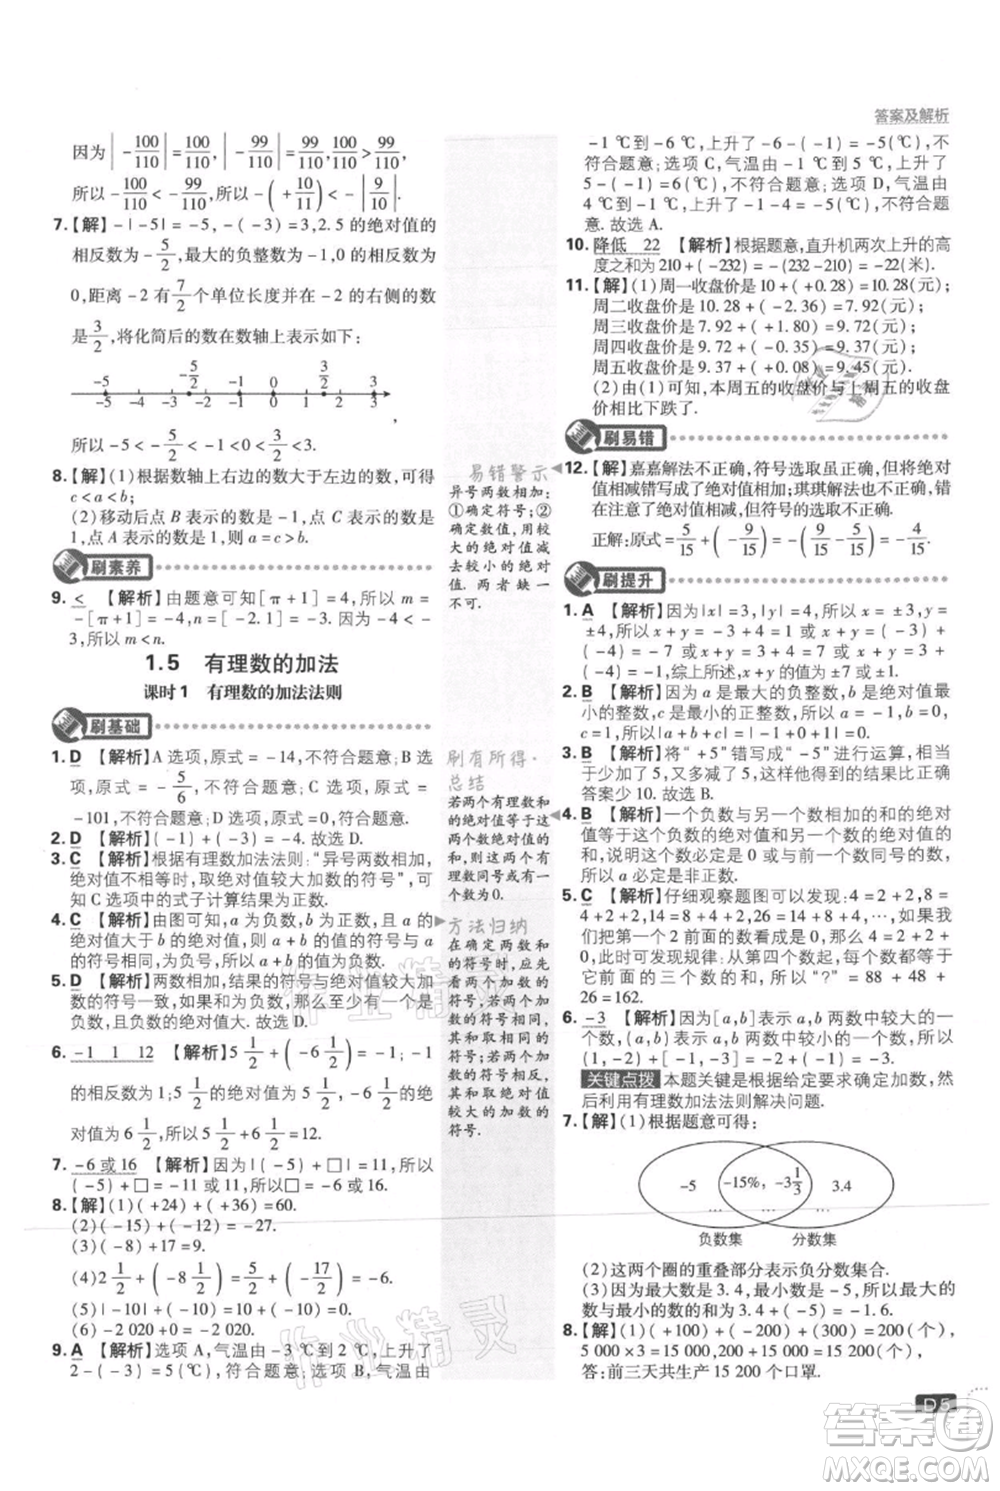 答案及解析
因为|-100/110|=100/110, |-99/110|=99/110, 100/110>99/110,
所以-100/110<-99/110, 所以-(+10/11)<-|9/10|.
7.【解】-|-5|=-5,-(-3)=3,2.5的绝对值的
相反数为-5/2,最大的负整数为-1,0的相反数为
0,距离-2有7/2个单位长度并在-2的右侧的数
是3/2,将化简后的数在数轴上表示如下:
-5 -5/2 -1 0 3/2 3
-5 -4 -3 -2 -1 0 1 2 3 ,
所以-5<-5/2<-1<0<3/2<3.
8.【解】(1)根据数轴上右边的数大于左边的数,可得
c<a<b;
(2)移动后点B表示的数是-1,点C表示的数是
1,点A表示的数是1,则a=c>b.
刷素养
9. <【解析】由题意可知[π+1]=4,所以m=
-[π+1]=-4,n=[-2.1]=-3.因为-4<
-3,所以m<n.
1.5 有理数的加法
课时1 有理数的加法法则
刷基础
1. D【解析】A选项,原式=-14,不符合题意;B选
项,原式=-5/6,不符合题意;C选项,原式=
-101,不符合题意;D选项,原式=0,符合题意.
2. D【解析】(-1)+(-3)=-4.故选D.
3. C【解析】根据有理数加法法则:“异号两数相加,
绝对值不相等时,取绝对值较大加数的符号”,可
知C选项中的式子计算结果为正数.
4. C【解析】由图可知,a为负数,b为正数,且a的
绝对值大于b的绝对值,所以a+b的值的符号与
a的符号相同,为负号,所以a+b的值为负数.
5. D【解析】两数相加,和的绝对值等于绝对值的和
数的符号一致,如果和为负数,那么至少有一个为
负数,几个均为负数.故选D.
6. -1 1 12【解析】5 1/2+(-6 1/2)=-1,-1
的相反数为1;5 1/2的绝对值为5 1/2,-6 1/2的绝
对值为6 1/2,所以5 1/2+6 1/2=12.
7. -6或16【解析】因为|(-5)+□|=11,所以
(-5)+□=±11,所以□=-6或16.
8.【解】(1)(+24)+(+36)=60.
(2)(-12)+(-15)=-27.
(3)(-8)+17=9.
(4)2 1/2+(-8 1/2)=5/2+(-17/2)=-6.
(5)|-10|+(+8)=18.
(6)-2 020+0=-2 020.
9. A【解析】选项A,气温由-3 ℃到2 ℃,上升了
2-(-3)=5(℃),符合题意;选项B,气温由
-1 ℃到-6 ℃,上升了-6-(-1)=-5(℃),不
符合题意;选项C,气温由-1 ℃到5 ℃,上升了
5-(-1)=6(℃),不符合题意;选项D,气温由
4 ℃到-1 ℃,上升了-1-4=-5(℃),不符合题
意.故选A.
10. 降低 22【解析】根据题意,直升机两次上升的高
度之和为210+(-232)=-(232-210)=-22(米).
11.【解】(1)周一收盘价是10+(+0.28)=10.28(元);
周二收盘价是10.28+(-2.36)=7.92(元);
周三收盘价是7.92+(+1.80)=9.72(元);
周四收盘价是9.72+(-0.35)=9.37(元);
周五收盘价是9.37+(+0.08)=9.45(元).
(2)由(1)可知,本周五的收盘价与上周五的收盘
价相比下跌了.
刷易错
12.【解】嘉嘉解法不正确,符号选取虽正确,但绝对
值相减错写成了绝对值相加;琪琪解法也不正确,错
在绝对值相减正确,但符号的选取不正确.
正解:原式=5/15+(-9/15)=-(9/15-5/15)=-4/15.
刷提升
1. A【解析】因为|x|=3,|y|=4,所以x=±3,y=
±4.所以x+y=3+4=7或x+y=3+(-4)=
-1或x+y=-3+4=1或x+y=(-3)+
(-4)=-7,综上所述,x+y的值为±7或±1.
2. B【解析】因为a是最大的负整数,b是绝对值最
小的有理数,c是最小的正整数,所以a=-1,b=0,
c=1,所以a+b+|c|=-1+0+1=0.故选B.
3. B【解析】将“+5”错写成“-5”进行运算,不
但少加了5,又多减了5,所以得到的结果比正确
答案少10.故选B.
4. B【解析】一个负数与另一个数相加的和的绝对
值等于这个负数的绝对值与另一个数的绝对值的
和,说明这个数必定是0或与前一个数同号的负数,
所以a必定是非正数.
5. C【解析】仔细观察题图可以发现:4=2+2,8=
4+2+2,14=8+4+2,26=14+8+4,…,如果我
们把第一个2前面的数看成是0,则0+0+2=2,
由此可发现规律:从第四个数起,每一个数都是它
前面三个数的和,所以“?”=88+48+
26=162.
6. -3【解析】因为[a,b]表示a,b两数中较大的一
个数,(a,b)表示a,b两数中较小的一个数,所以
(1,-2)+[-1,-3]=-2+(-1)=-3.
关键点拨 本题关键是根据给定要求确定加数,然
后利用有理数加法法则解决问题.
7.【解】(1)根据题意可得:
-5 -15%, -3 1/3 3.4
… … …
负数集 分数集
(2)这两个圈的重叠部分表示负分数集合.
(3)最大的数是3.4,最小的数是-5,所以最大的
数与最小的数之和为3.4+(-5)=-1.6.
8.【解】(1)(+100)+(-200)+(300)+
5 000×3=15 200(个).
答:前三天共生产15 200个口罩.
易错警示
异号两数相加:
①确定符号;②
确定数值,用较
大的绝对值减
去较小的绝对
值.两者缺一
不可.
刷有所得·
总结
若两个有理数和
的绝对值等于这
两个数绝对值的
和,则这两个有
理数同号或至少
有一个数为0.
方法归纳
在确定两数和
的符号时,应先
看两个数的符
号,若两个数
的符号相同,则
和取相同的符
号,若两个数
的符号相反,则
和取绝对值较
大的加数的
符号.
D5
作业精灵
作业精灵
答案圈
MXQE.COM